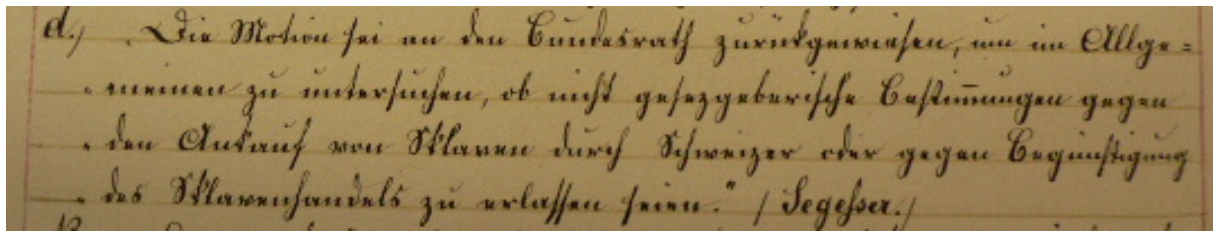 d.) „Die Motion sei an den Bundesrath zurückgewiesen, um im Allge=
„meinen zu untersuchen, ob nicht gesezgeberische Bestim̅ungen gegen
„den Ankauf von Sklaven durch Schweizer oder gegen Begünstigung
„des Sklavenhandels zu erlassen seien.“ / Segesser. /